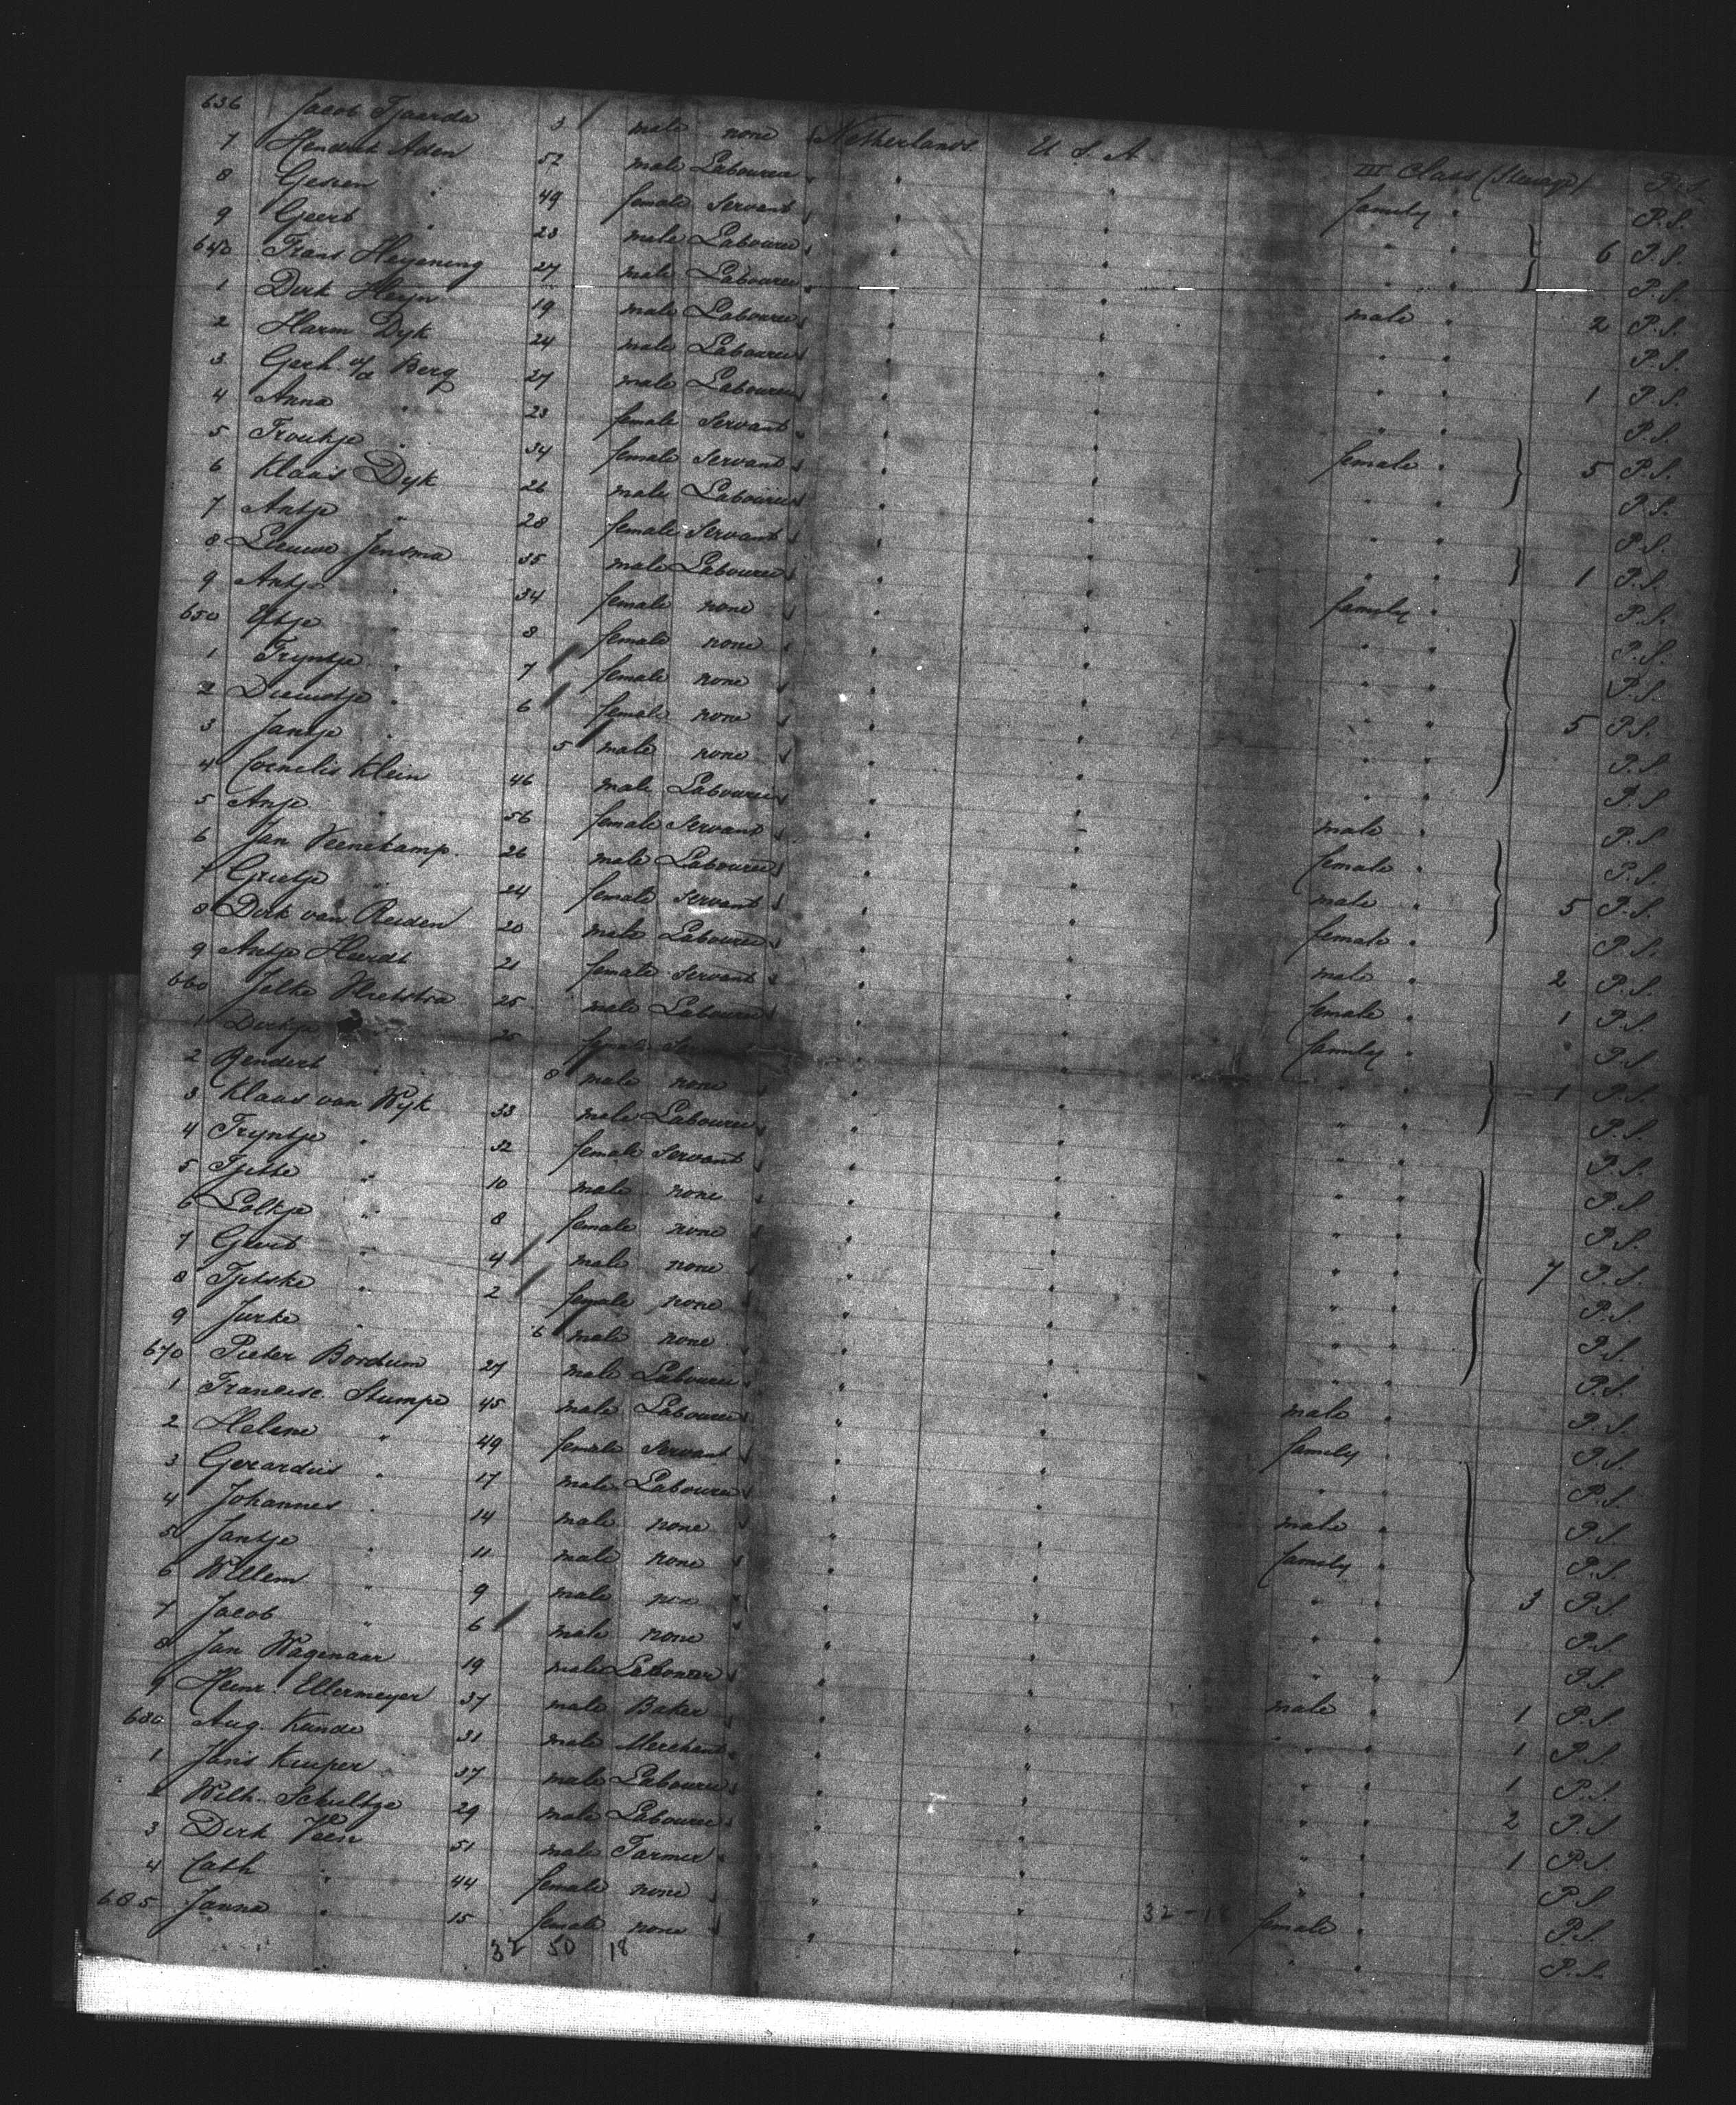 636 Jacob Tjaarda 3 male none Netherlands U. S. A. III Class (Steerage) P.S.
7 Hendrik Aden 52 male Labourer " " family " P.S.
8 Gesien " 49 female Servant " " " " 6 P.S.
9 Geert " 23 male Labourer " " " " P.S.
640 Frans Heyening 27 male Labourer " " male " 2 P.S.
1 Dirk Heyn 19 male Labourer " " " " P.S.
2 Harm Dyk 24 male Labourer " " " " 1 P.S.
3 Gerh. v/d Berg 27 male Labourer " " " " P.S.
4 Anna " 23 female Servant " " female " 5 P.S.
5 Froukje " 34 female Servant " " " " P.S.
6 Klaas Dyk 26 male Labourer " " " " P.S.
7 Antje " 28 female Servant " " " " 1 P.S.
8 Leeuwe Jensma 35 male Labourer " " family " P.S.
9 Antje " 34 female none " " " " P.S.
650 Ytje " 8 female none " " " " P.S.
1 Tryntje " 7 female none " " " " 5 P.S.
2 Dieuwtje " 6 female none " " " " P.S.
3 Jantje " 5 male none " " " " P.S.
4 Cornelis Klein 46 male Labourer " " male " P.S.
5 Anje 56 female Servant " " female " P.S.
6 Jan Veenekamp 26 male Labourer " " male " 5 P.S.
7 Grietje " 24 female Servant " " female " P.S.
8 Dirk van Reiden 20 male Labourer " " male " 2 P.S.
9 Antje Heerdt 21 female Servant " " female " 1 P.S.
660 Jelke Vlietstra 25 male Labourer " " family " P.S.
1 Dirkje 25 female " " " " 1 P.S.
2 Rendert " 8 male none " " " " P.S.
3 Klaas van Wyk 33 male Labourer " " " " P.S.
4 Tryntje " 32 female Servant " " " " P.S.
5 Tjitte " 10 male none " " " " P.S.
6 Lolkje " 8 female none " " " " 7 P.S.
7 Geert " 4 male none " " " " P.S.
8 Tjitske " 2 female none " " " " P.S.
9 Jurke " 6 male none " " " " P.S.
670 Pieter Bordum 27 male Labourer " " male " P.S.
1 Francisc. Stumpe 45 male Labourer " " family " P.S.
2 Helene " 49 female Servant " " " " P.S.
3 Gerardus " 17 male Labourer " " male " P.S.
4 Johannes " 14 male none " " family " P.S.
5 Jantje " 11 male none " " " " 3 P.S.
6 Willem " 9 male none " " " " P.S.
7 Jacob " 6 male none " " " " P.S.
8 Jan Wagenaar 19 male Labourer " " male " 1 P.S.
9 Heinr. Ellermeyer 37 male Baker " " " " 1 P.S.
680 Aug. Kunde 31 male Merchant " " " " 1 P.S.
1 Janis Kuiper 37 male Labourer " " " " 2 P.S.
2 Wilh. Schultze 29 male Labourer " " " " 1 P.S.
3 Dirk Veen 51 male Farmer " " " " P.S.
4 Cath " 44 female none " " female " P.S.
685 Janna " 15 female none " " " " P.S.
32 - 18
32 50 18